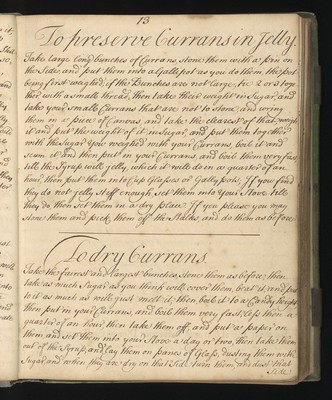 13
To preserve Currans in Jelly.
Take large long bunches of Currans, stone them with a pin on
the Side, and put them into a Gallypot as you do them, the pot
being first weighed, if the Bunches are not large, tie 2 or 3 toge
ther with a small thread, then take their weight in Sugar, and
take your small Currans that are not to stone, and wring
them in a piece of Canvas, and take the clearest of that, weigh
it and put the weight of it in Sugar, and put them together
with the Sugar you weighed with your Currans, boil it and
scum it, and then put in your Currans, and boil them very fast
till the Syrup will jelly, which it will do in a quarter of an
hour, then put them into Cup Glasses or Gallypots, If you find
they do not jelly stiff enough, set them into your Stove till
they do, then set them in a dry place. If you please you may
stone them and pick them off the Stalks, and do them as before.
To dry Currans.
Take the fairest and largest bunches, stone them as before, then
take as much Sugar as you think will cover them, beat it and put
to it as much as will just melt it, then boil it to a Candy height
then put in your Currans, and boil them very fast, less than a
quarter of an hour, then take them off, and put a paper on
them, and set them into your Stove a day or two, then take them
out of the Syrup, and lay them on panes of Glass, dusting them with
Sugar, and when they are dry on that Side, turn them, and dust that
Side